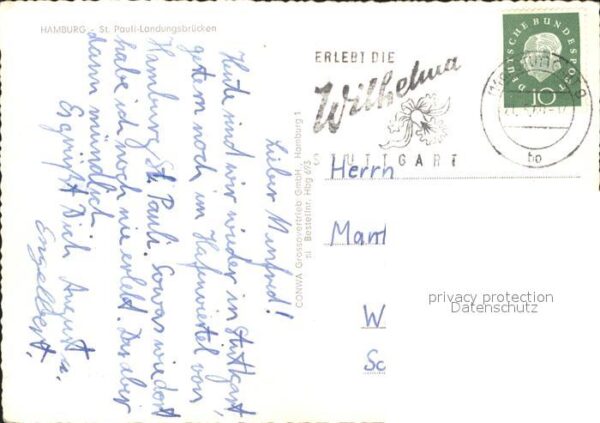 HAMBURG - St. Pauli-Landungsbrücken
Lieber Manfred!
Heute sind wir wieder in Stuttgart,
gestern noch im Hafenviertel von
Hamburg St. Pauli. Sowas wie dort
habe ich noch nie erlebt. Das aber
dann mündlich
Es grüßt Dich August u.
Engelbert.
CONWA Grossovertrieb GmbH., Hamburg 1
Bestellnr. Hbg 693
ERLEBT DIE
Wilhelma
STUTTGART
DEUTSCHE BUNDESPOST
10
Herrn
Manf
W
Sc
privacy protection
Datenschutz